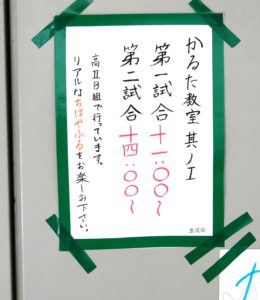 かるた教室 其ノ工
第一試合 十一:〇〇〜
第二試合 十四:〇〇〜
高ⅡB組で行っています。
リアルなちはやふるをお楽しみ下さい。